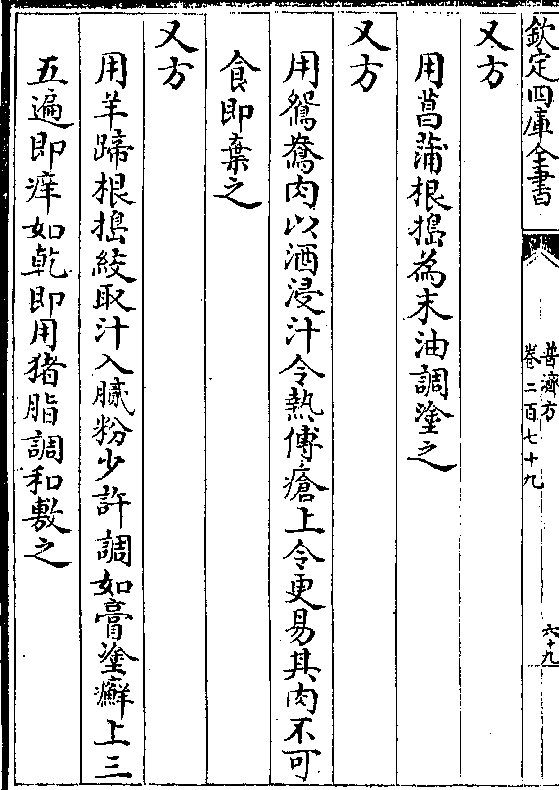 欽定四庫全書
普濟方
卷二百七十九
六十九
又方
用菖蒲根搗為末油調塗之
又方
用鴛鴦肉以酒浸汁令熱傅瘡上令更易其肉不可
食即棄之
又方
用羊蹄根搗絞取汁入膩粉少許調如膏塗癬上三
五遍即痒如乾即用猪脂調和敷之